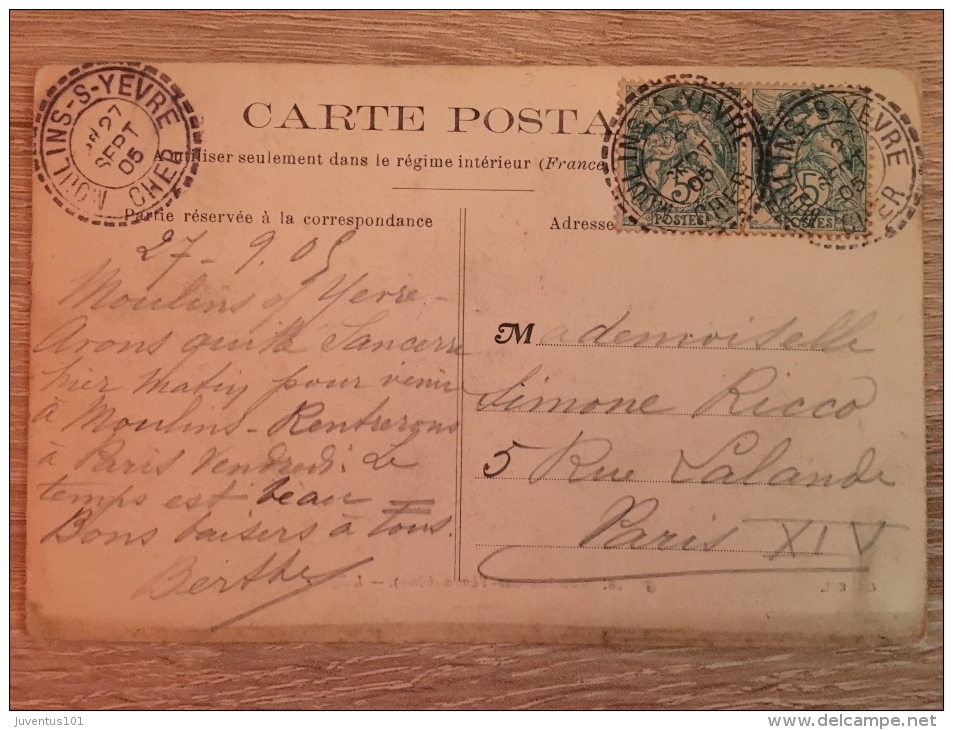 CARTE POSTA
A utiliser seulement dans le régime intérieur (France
Partie réservée à la correspondance
Adresse
MOULINS-S-YEVRE
27
SEPT
05
CHER
5
POSTES
5
POSTES
27-9.05
Moulins s/ Yevre-
Avons quitté Sancerre
hier matin pour venir
à Moulins- Rentrerons
à Paris Vendredi. Le
temps est beau
Bons baisers à Tous.
Berthe
Mademoiselle
Simone Ricco
5 Rue Lalande
Paris XIV
juventus101
delcampe.net